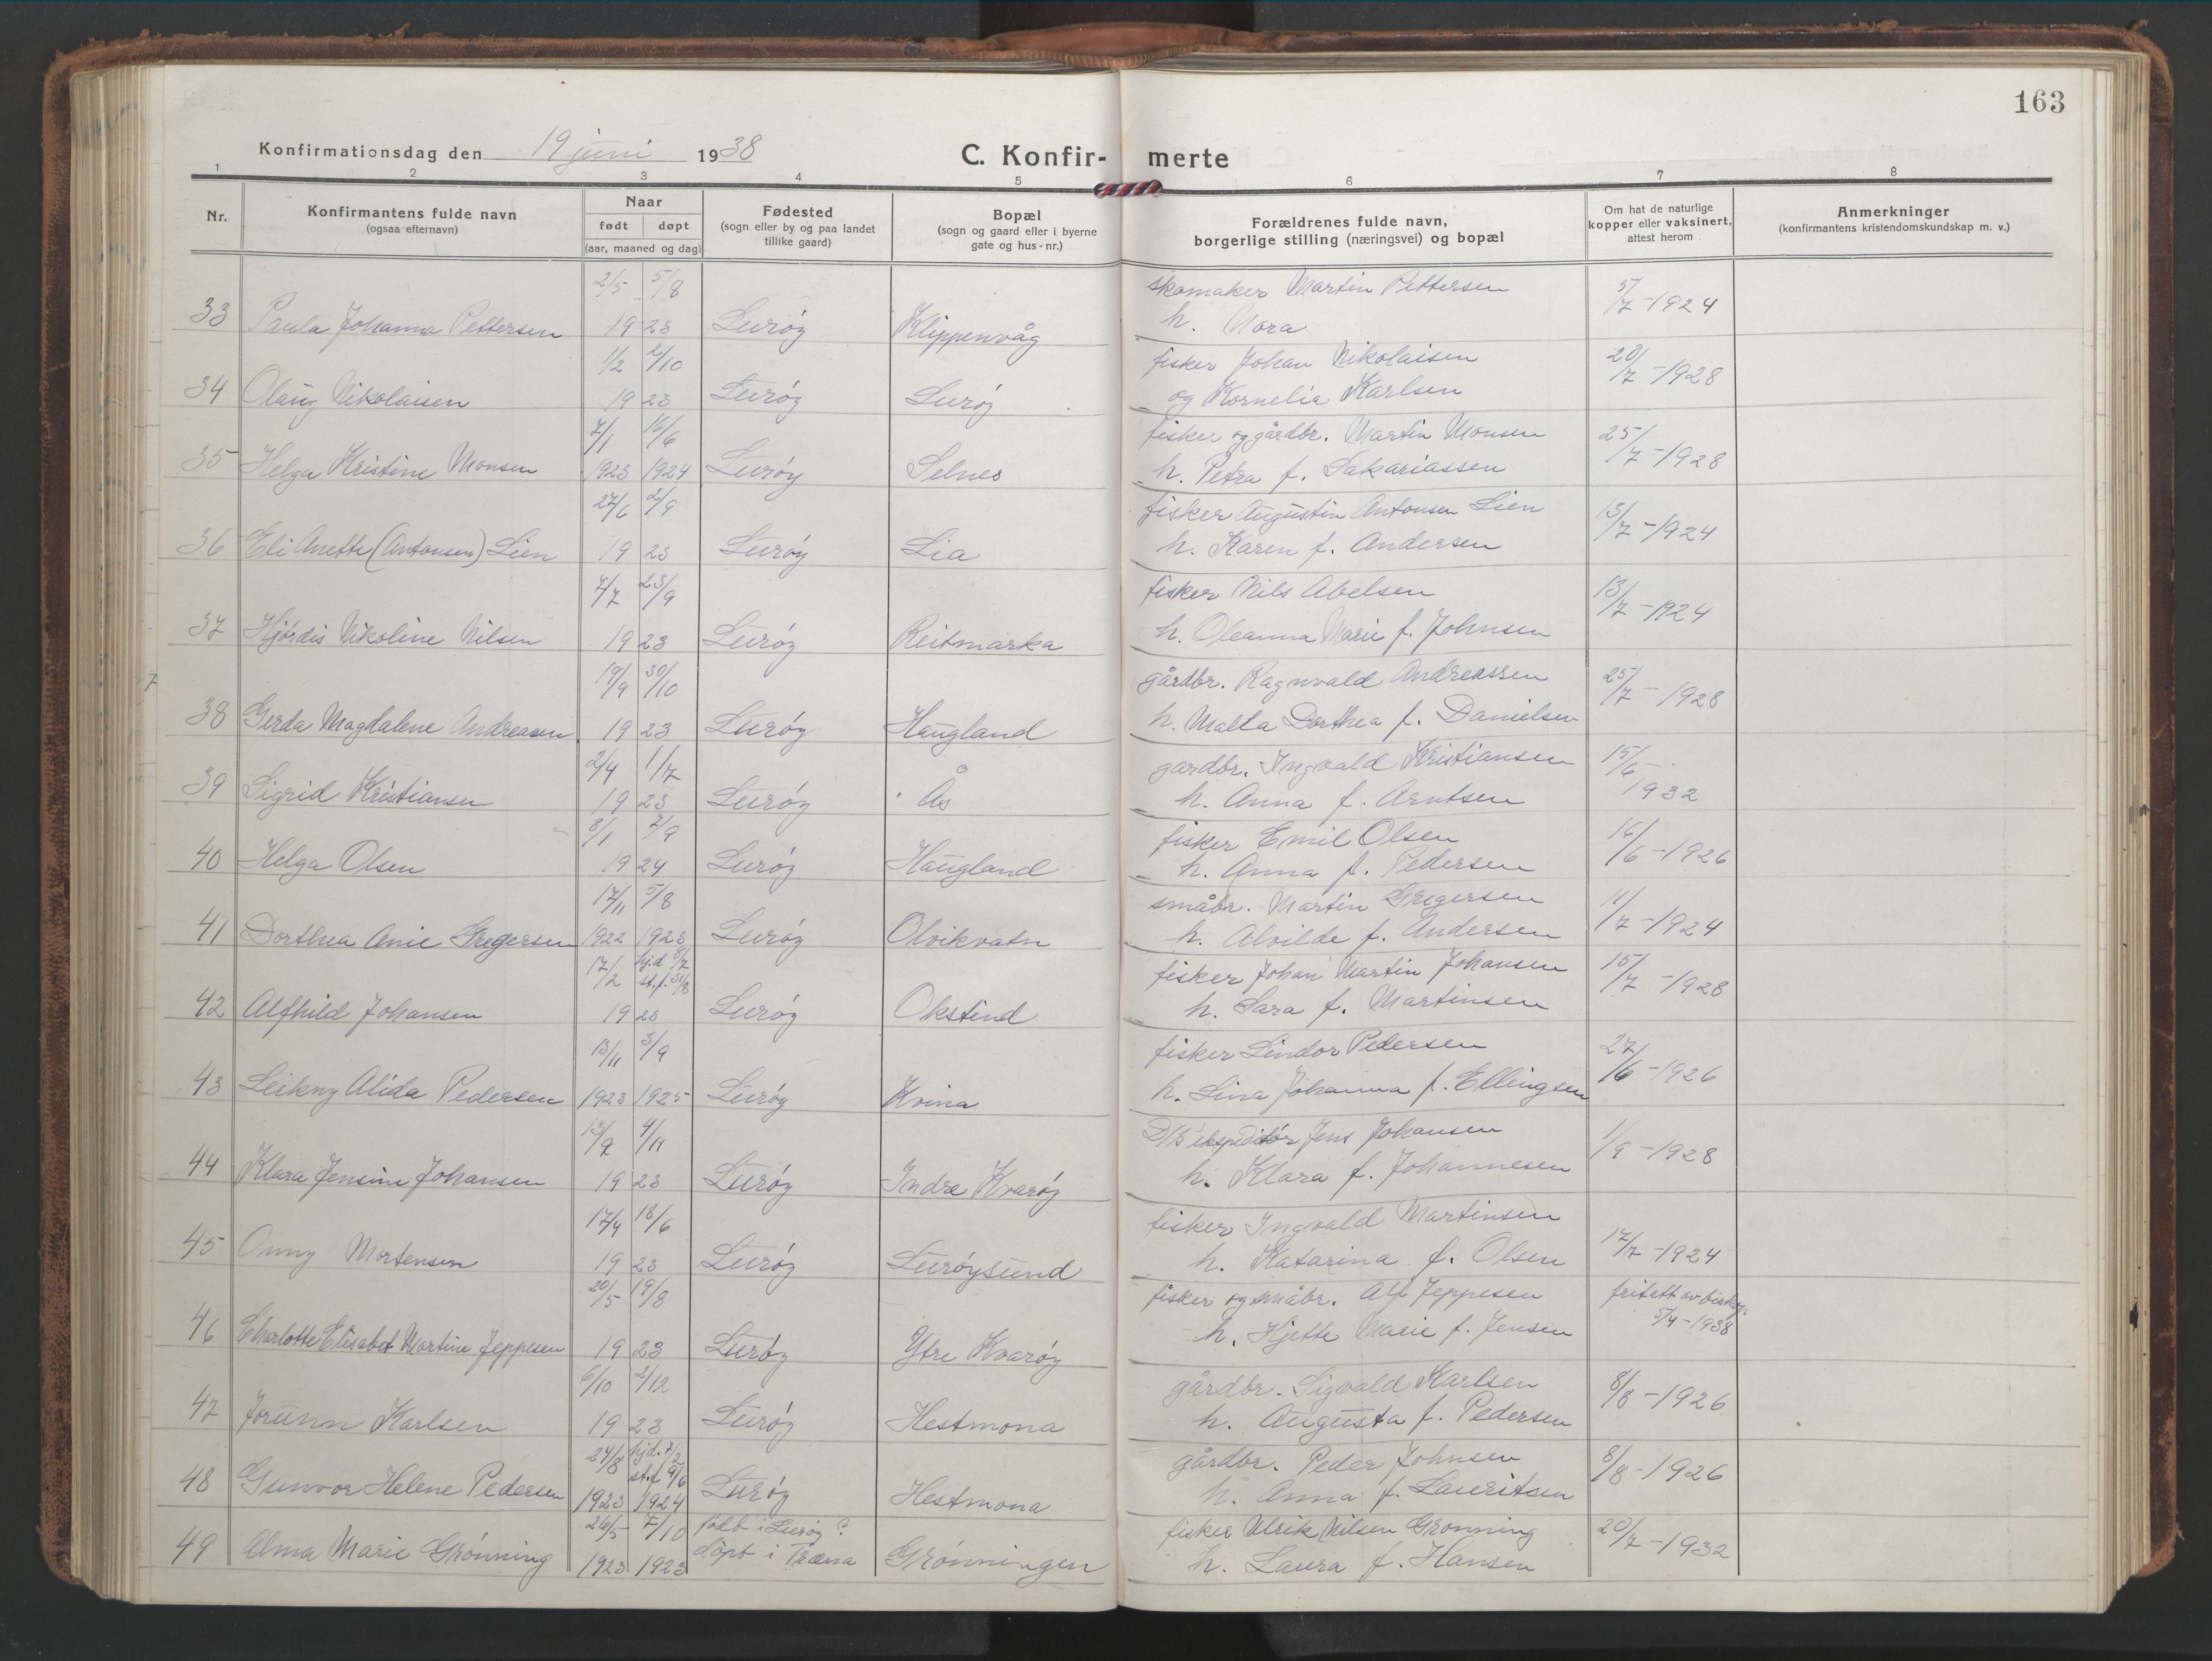 163
Konfirmationsdag den 19 juni 1938
C. Konfir- merte
1 2 3 4 5 6 7 8
Nr.
Konfirmantens fulde navn
(ogsaa efternavn)
Naar
født døpt
(aar, maaned og dag)
Fødested
(sogn eller by og paa landet
tillike gaard)
Bopæl
(sogn og gaard eller i byerne
gate og hus-nr.)
Forældrenes fulde navn,
borgerlige stilling (næringsvei) og bopæl
Om hat de naturlige
kopper eller vaksinert,
attest herom
Anmerkninger
(konfirmantens kristendomskundskap m. v.)
2/5 5/8 skomaker Martin Pettersen 5/7-1924
33 Paula Johanna Pettersen 1923 Lurøy Klippenvåg h. Nora
1/2 2/10 fisker Johan Nikolaisen 20/7-1928
34 Olaug Nikolaisen 1923 Lurøy Lurøy og Kornelia Karlsen
7/1 16/6 fisker og gårdbr. Martin Monsen 25/7-1928
35 Helga Kristine Monsen 1923 1924 Lurøy Selnes h. Petra f. Sakariassen
27/6 2/9 fisker Augustin Antonsen Lien 13/7-1924
36 Eli Anette (Antonsen) Lien 1923 Lurøy Lia h. Karen f. Andersen
7/7 23/9 fisker Nils Abelsen 13/7-1924
37 Hjørdis Nikoline Nilsen 1923 Lurøy Reitmarka h. Oleanna Marie f. Johnsen
19/9 30/10 gårdbr. Ragnvald Andreassen 25/7-1928
38 Gerda Magdalene Andreasen 1923 Lurøy Haugland h. Malla Dorthea f. Danielsen
2/4 1/7 gardbr. Ingvald Kristiansen 15/6-1932
39 Sigrid Kristiansen 1923 Lurøy Ås h. Anna f. Arntsen
8/1 7/9 fisker Emil Olsen 16/6-1926
40 Helga Olsen 1924 Lurøy Haugland h. Anna f. Pedersen
17/11 5/8 småbr. Martin Gregersen 11/7-1924
41 Dorthea Anie Gregersen 1922 1923 Lurøy Olvikvatn h. Alvilde f. Andersen
17/2 hj.d 8/7 st.f. 31/8 fisker Johan Martin Johansen 15/7-1928
42 Alfhild Johansen 1923 Lurøy Okstind h. Sara f. Martinsen
13/11 3/9 fisker Lindor Pedersen 27/6-1926
43 Leikny Alida Pedersen 1923 1925 Lurøy Kvina h. Lina Johanna f. Ellingsen
13/9 4/11 D/S ekspeditør Jens Johansen 1/9-1928
44 Klara Jensine Johansen 1923 Lurøy Indre Kvarøy h. Klara f. Johannesen
17/4 18/6 fisker Ingvald Martinsen 17/7-1924
45 Onny Mortensen 1923 Lurøy Lurøysund h. Katarina f. Olsen
20/5 19/8 fisker og småbr. Alf Jeppesen fritatt av biskop
5/4-1938
46 Charlotte Elisabet Martine Jeppesen 1923 Lurøy Ytre Kvarøy h. Hjette Marie f. Jensen
6/10 2/12 gårdbr. Sigvald Karlsen 8/8-1926
47 Jorunn Karlsen 1923 Lurøy Hestmona h. Augusta f. Pedersen
24/8 hjd. 7/2 st.f 9/6 gårdbr. Peder Johnsen 8/8-1926
48 Gunvor Helene Pedersen 1923 1924 Lurøy Hestmona h. Anna f. Lauritsen
26/5 7/10 født i Lurøy? fisker Ulrik Nilsen Grønning 20/7-1932
49 Alma Marie Grønning 1923 1923 døpt i Træna Grønningen h. Laura f. Hansen